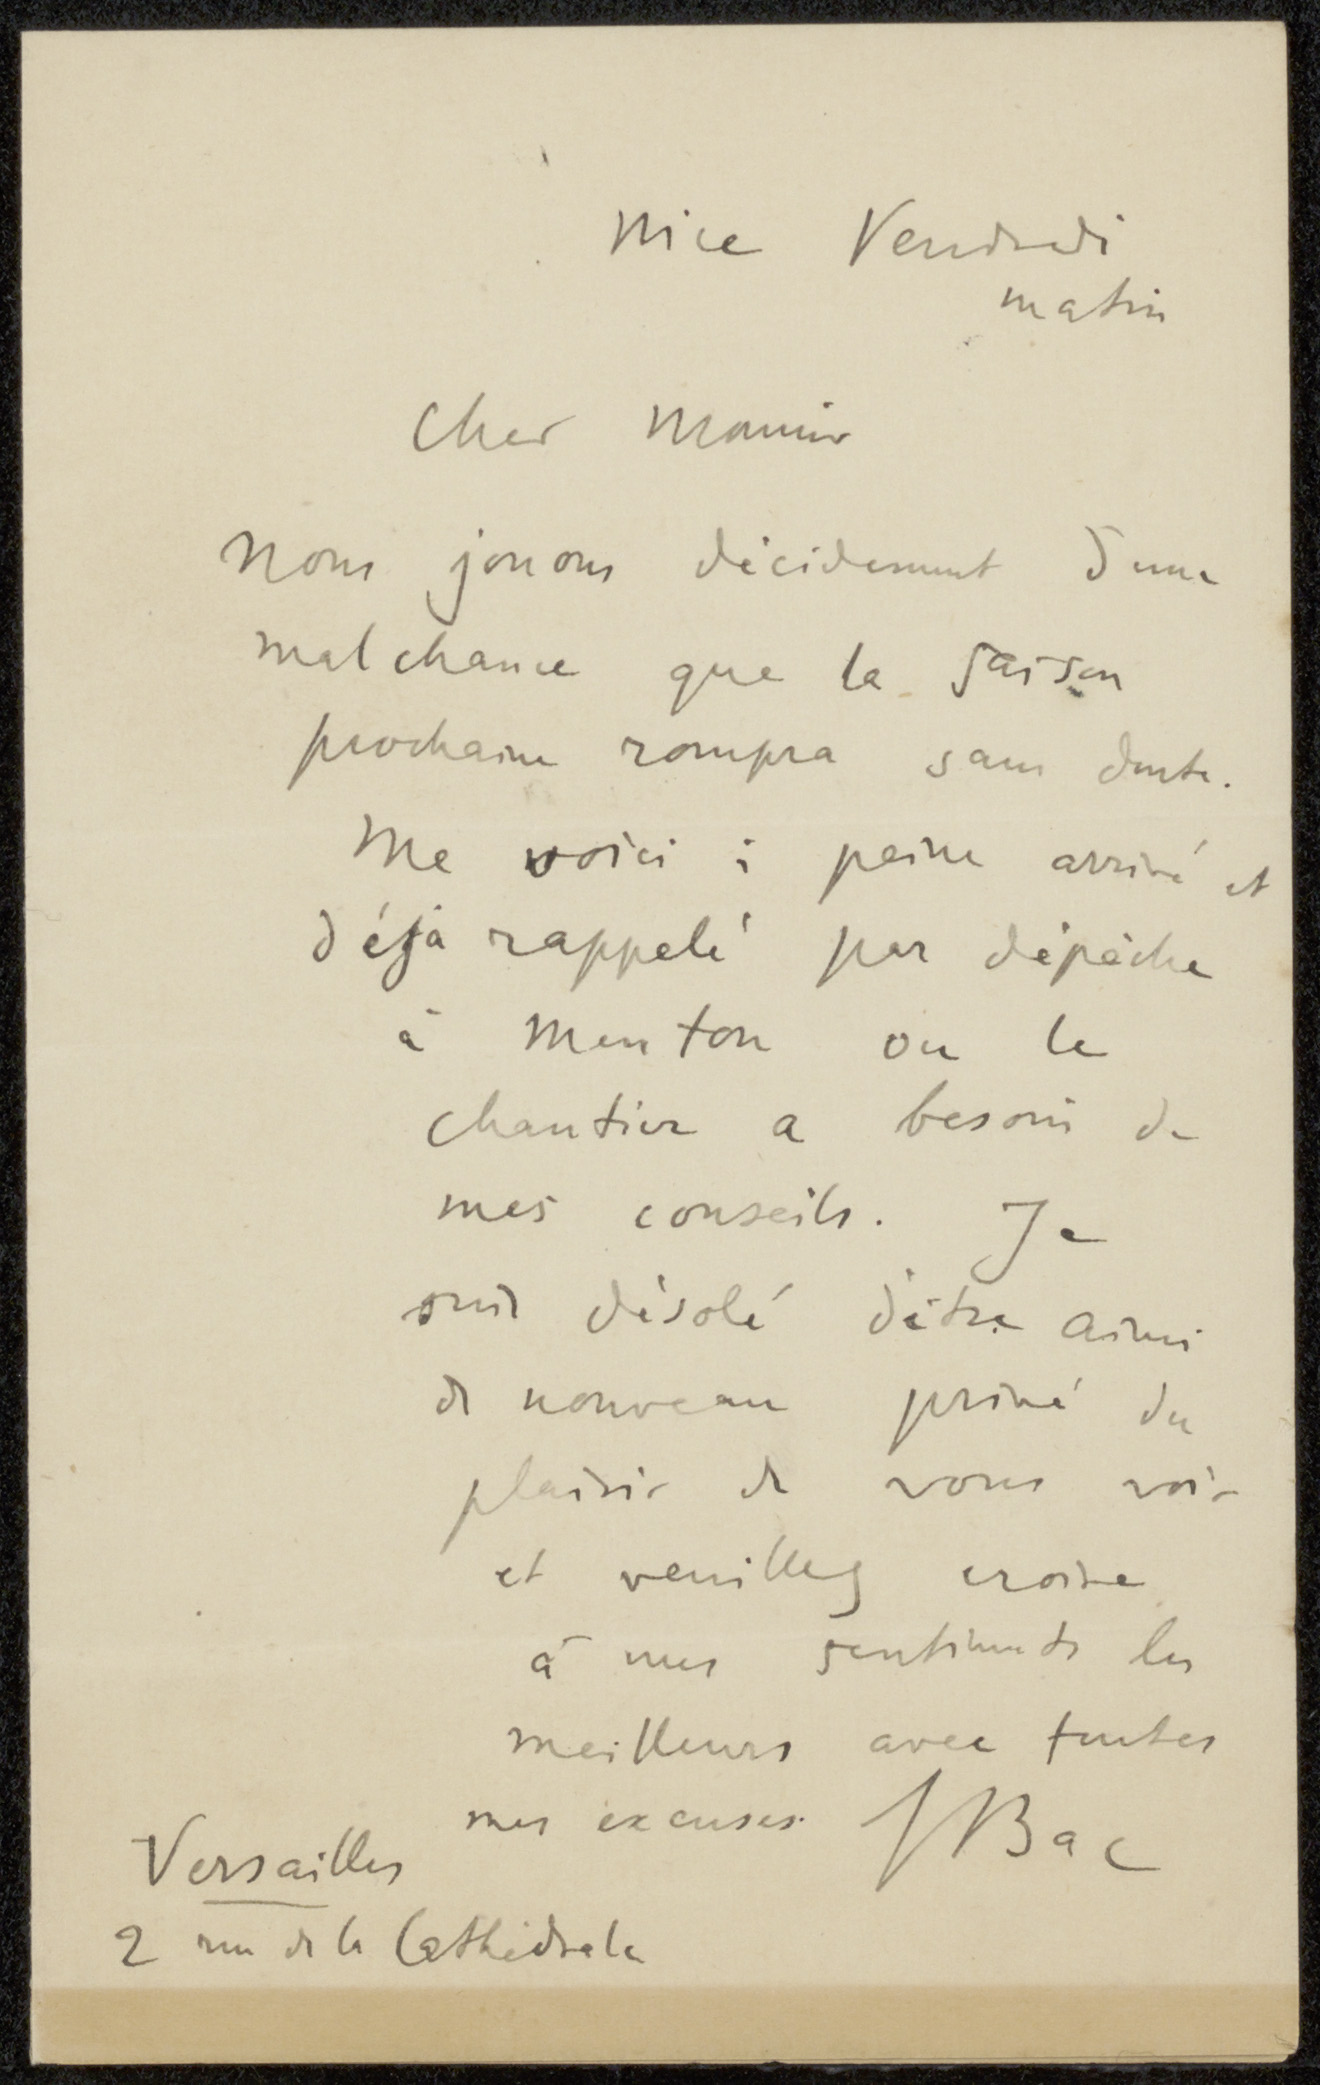 Nice Vendredi
matin
Cher Monsieur
Nous jouons décidement d'une
malchance que la saison
prochaine rompra sans doute.
Me voici à peine arrivé et
déjà rappelé par dépêche
à Menton ou le
chantier a besoin de
mes conseils. Je
suis désolé d'être ainsi
de nouveau privé du
plaisir de vous voir
et veuillez croire
à mes sentiments les
meilleurs avec toutes
mes excuses. FBac
Versailles
2 rue de la Cathédrale